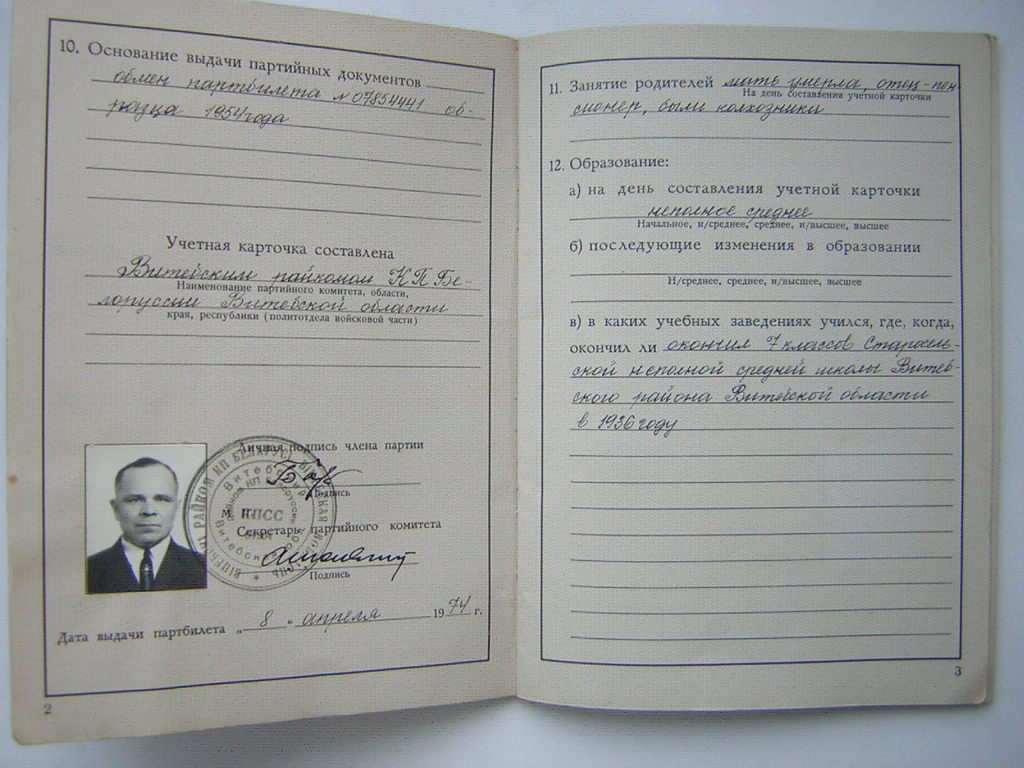 10. Основание выдачи партийных документов
обмен партбилета № 07854441 об-
разца 1954 года
Учетная карточка составлена
Витебским райкомом КП Бе-
Наименование партийного комитета, области,
лоруссии Витебской области
края, республики (политотдела войсковой части)
Личная подпись члена партии
Подпись
М. П.
КПСС
Секретарь партийного комитета
Подпись
Дата выдачи партбилета „ 8 “ апреля 1974 г.
2
11. Занятие родителей мать умерла, отец-пен-
На день составления учетной карточки
сионер, были колхозники
12. Образование:
а) на день составления учетной карточки
неполное среднее
Начальное, н/среднее, среднее, н/высшее, высшее
б) последующие изменения в образовании
Н/среднее, среднее, н/высшее, высшее
в) в каких учебных заведениях учился, где, когда,
окончил ли окончил 7 классов Старосель-
ской неполной средней школы Витеб-
ского района Витебской области
в 1936 году
3